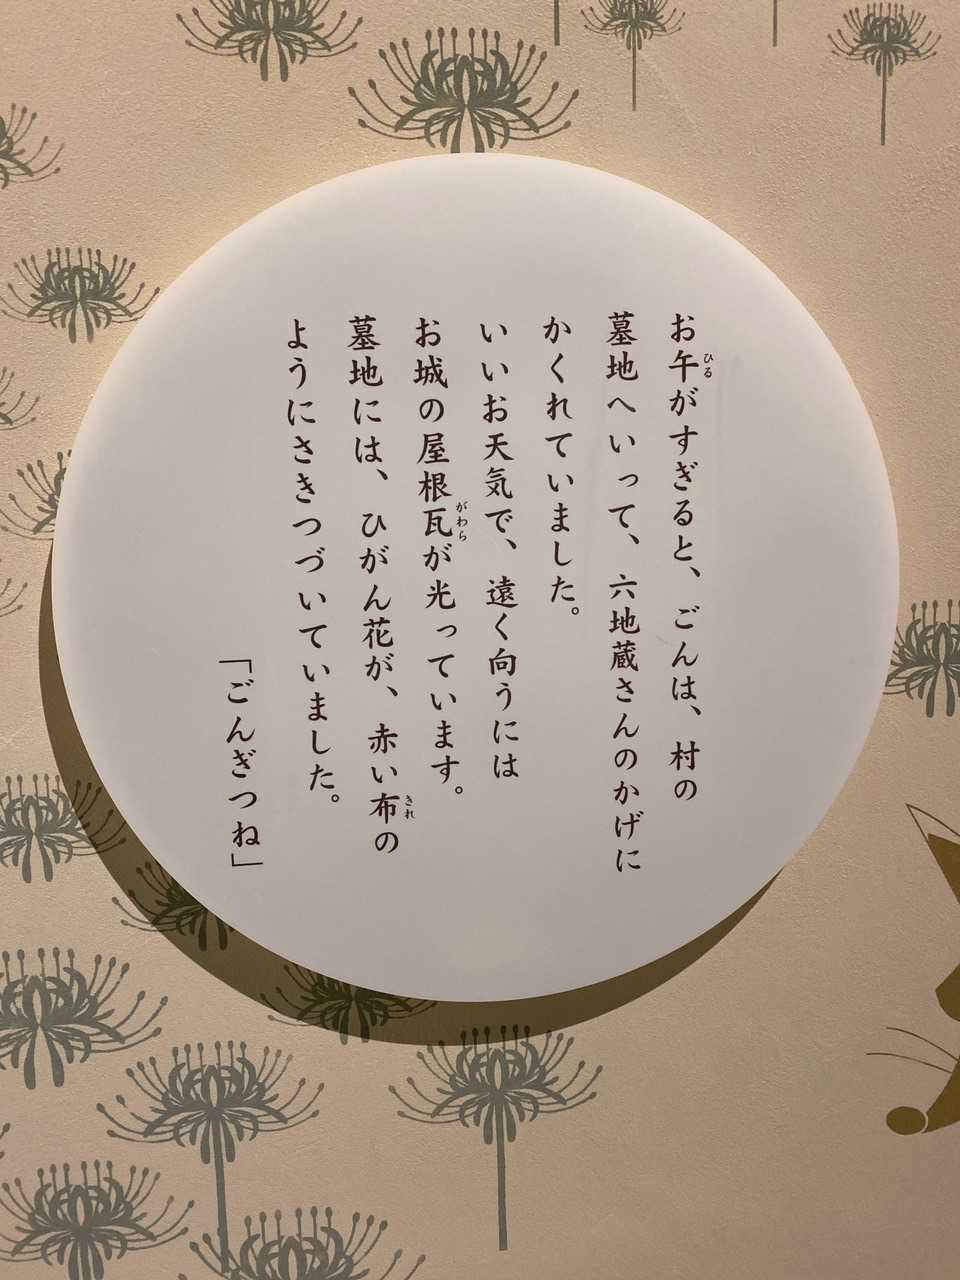 お午がすぎると、ごんは、村の
墓地へいって、六地蔵さんのかげに
かくれていました。
いいお天気で、遠く向うには
お城の屋根瓦が光っています。
墓地には、ひがん花が、赤い布の
ようにさきつづいていました。
「ごんぎつね」